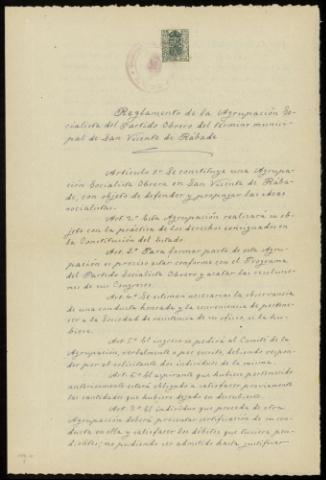 Reglamento de la Agrupación So-
cialista del Partido Obrero del término munici-
pal de San Vicente de Rábade
Artículo 1º Se constituye una Agrupa-
ción Socialista Obrera en San Vicente de Rába-
de, con objeto de defender y propagar las ideas
socialistas.
Art. 2º Esta Agrupación realizará su ob-
jeto con la práctica de los derechos consignados en
la Constitución del Estado.
Art. 3º Para formar parte de esta Agru-
pación es preciso estar conforme con el Programa
del Partido Socialista Obrero y acatar las resolucio-
nes de sus Congresos.
Art. 4º Se estiman necesarias la observancia
de una conducta honrada y la conveniencia de pertene-
cer a la Sociedad de resistencia de su oficio, si la hu-
biere.
Art. 5º El ingreso se pedirá al Comité de la
Agrupación, verbalmente o por escrito, debiendo respon-
der por el solicitante dos individuos de la misma.
Art. 6º El aspirante que hubiere pertenecido
anteriormente estará obligado a satisfacer previamente
las cantidades que hubiere dejado en descubierto.
Art. 7º El individuo que proceda de otra
Agrupación deberá presentar certificación de su con-
ducta en ella y satisfacer los débitos que tuviera pen-
dientes; no pudiendo ser admitido hasta justificar